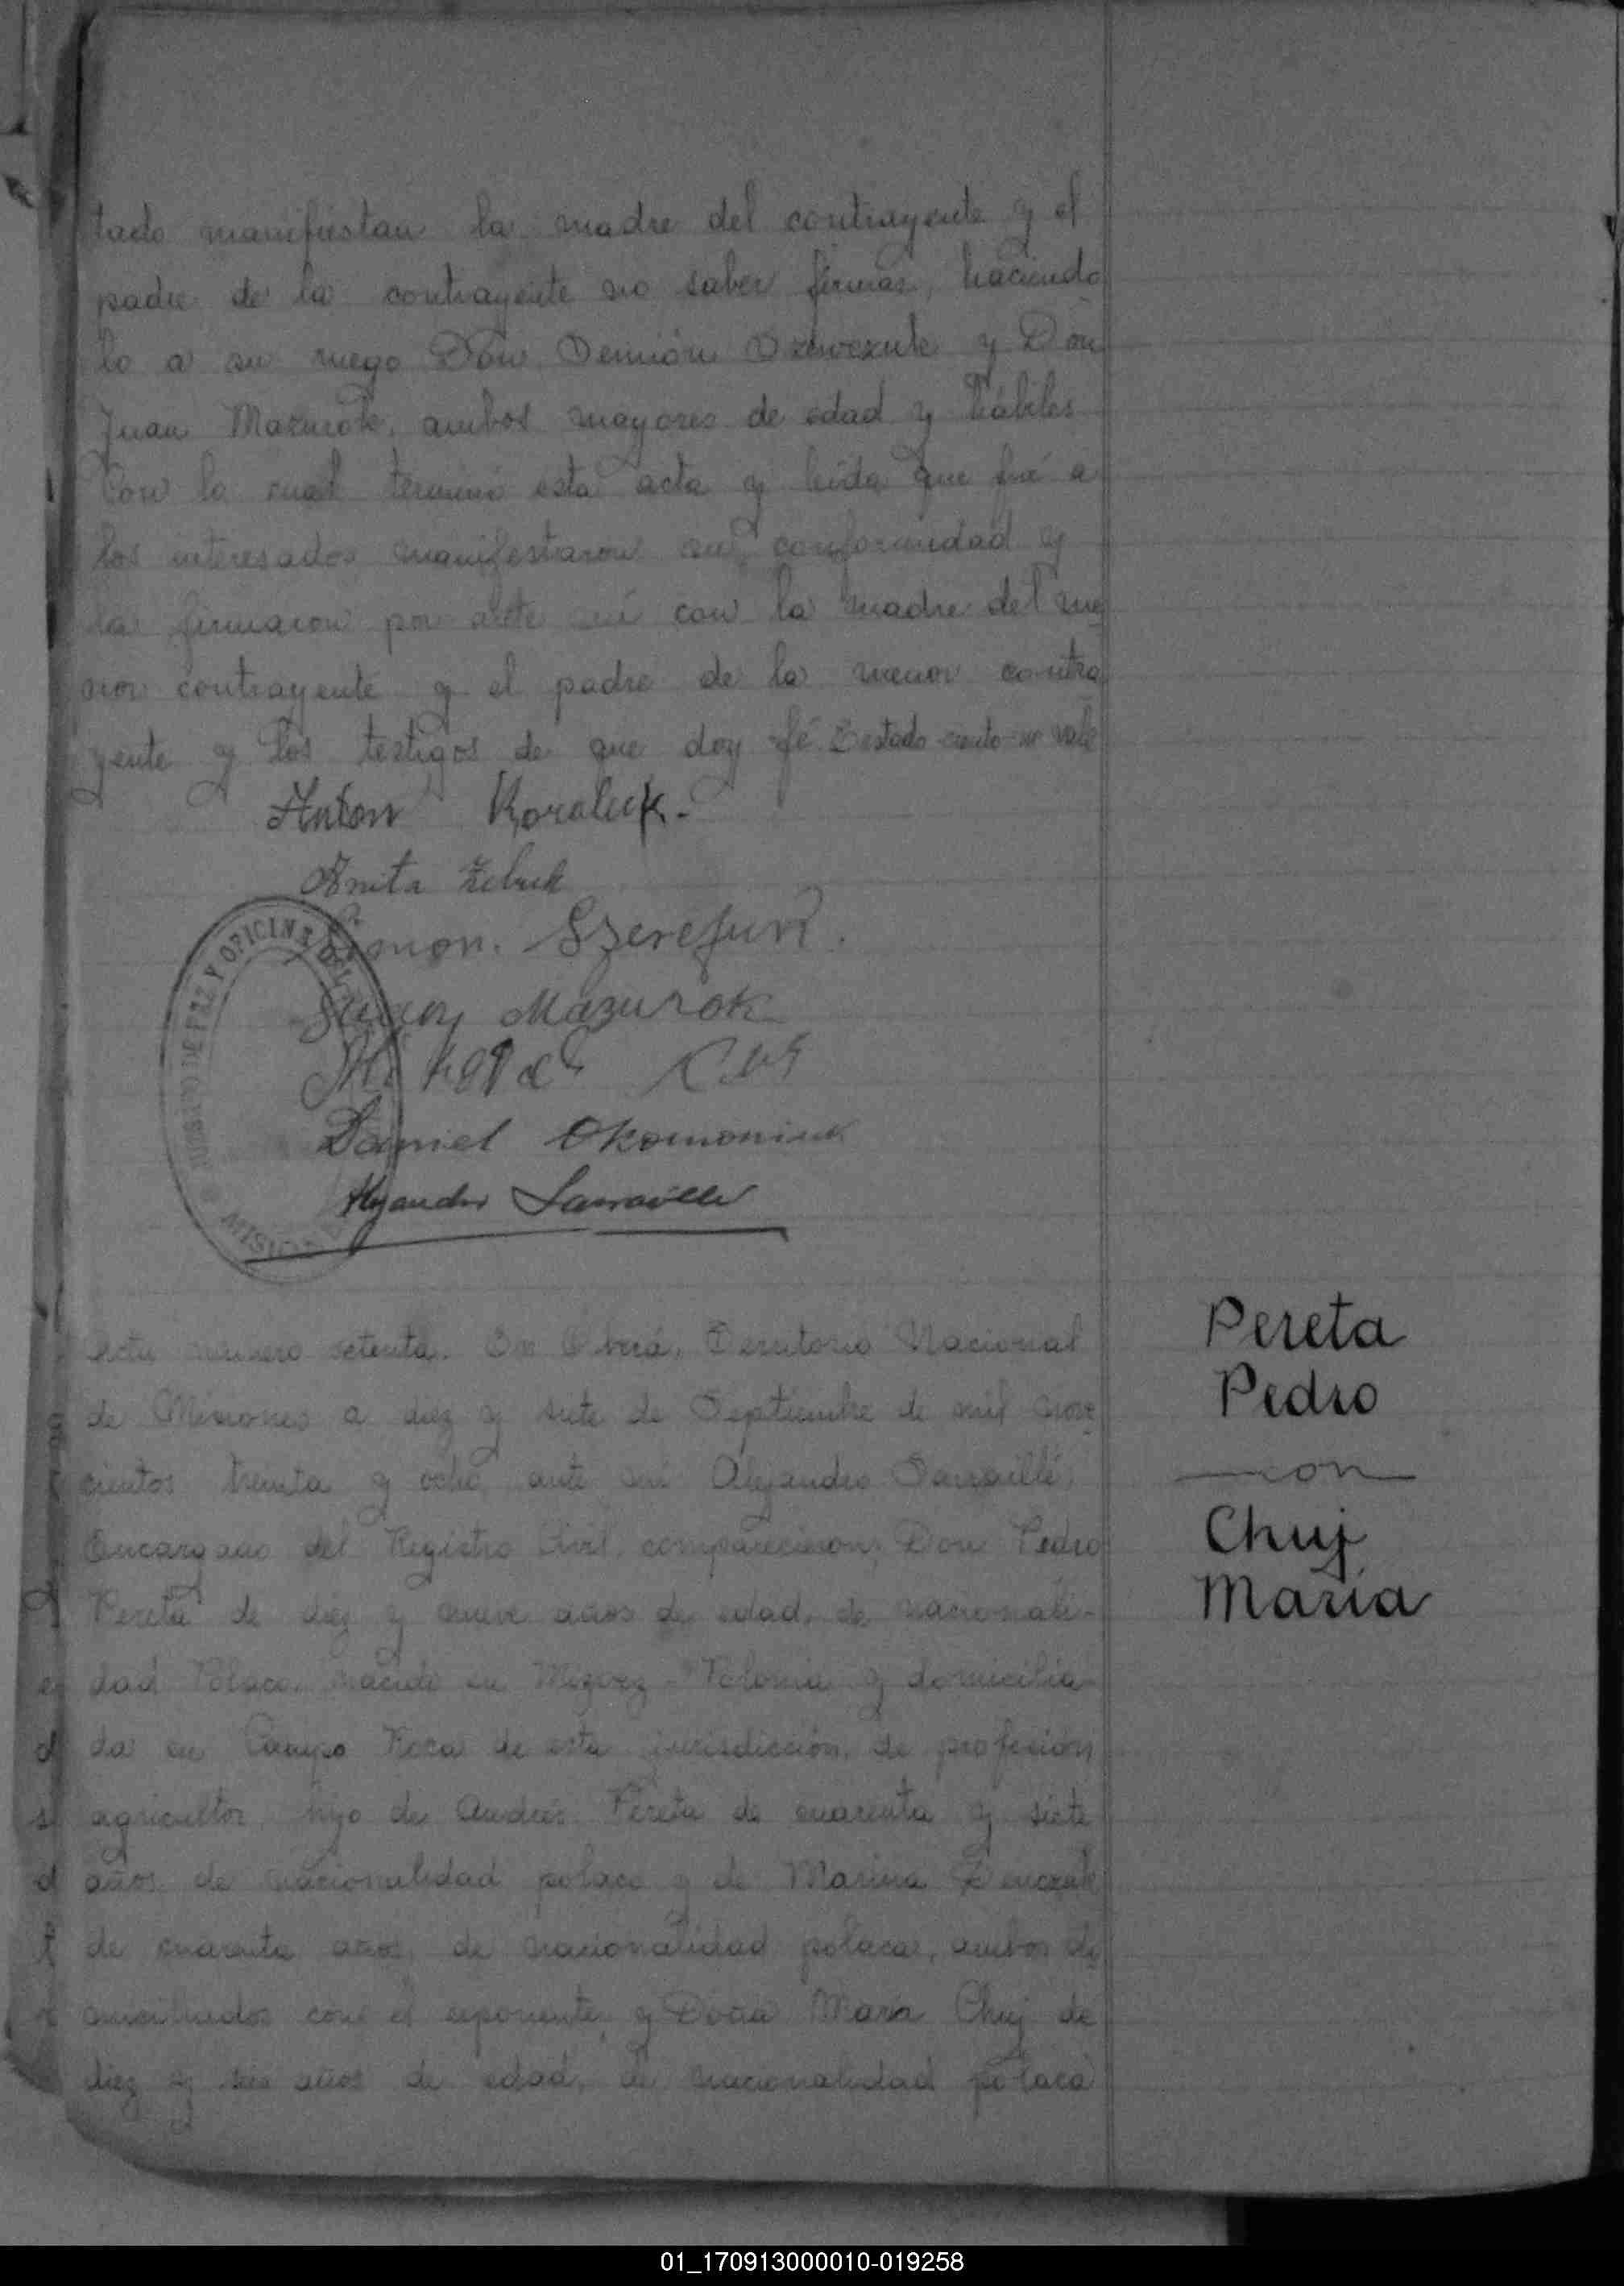 tado manifiestan la madre del contrayente y el
padre de la contrayente no saber firmar, haciendo
lo a su ruego Don y Don
Juan Mazurok, ambos mayores de edad y hábiles
Con lo cual terminó esta acta y leída que fué a
los interesados manifestaron su conformidad y
la firmaron por ante mí con la madre del me
nor contrayente y el padre de la menor contra
yente y los testigos de que doy fé. Testado no vale
Anton Koraluk.
Anita
Simon. Szerefun
Mazurok
Daniel Okomoniuk
Alejandro Sarraillé
JUZGADO DE PAZ Y OFICINA
MISIONES
Acta número setenta. En Oberá, Territorio Nacional
de Misiones a diez y siete de Septiembre de mil nove
cientos treinta y ocho, ante mí Alejandro Sarraillé,
Encargado del Registro Civil, comparecieron, Don Pedro
Pereta de diez y nueve años de edad, de nacionali-
dad Polaco, nacido en Polonia y domicilia
do en Campo Roca de esta jurisdicción, de profesión
agricultor, hijo de Andrés Pereta de cuarenta y siete
años de nacionalidad polaco y de Marina
de cuarenta años, de nacionalidad polaca, ambos do
miciliados con el exponente, y Doña María Chuj de
diez y seis años de edad, de nacionalidad polaca
Pereta
Pedro
con
Chuj
María
01_170913000010-019258